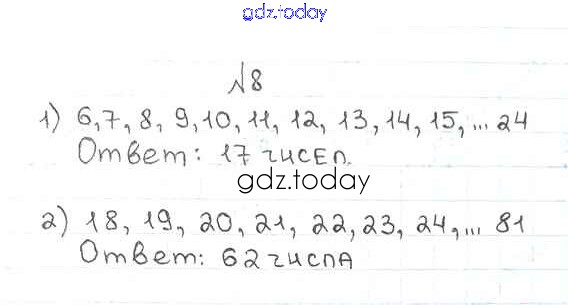 gdz.today
№8
1) 6,7, 8, 9,10, 11, 12, 13, 14, 15, ... 24
Ответ: 17 чисел.
gdz.today
2) 18, 19, 20, 21, 22, 23, 24, ... 81
Ответ: 62 числа